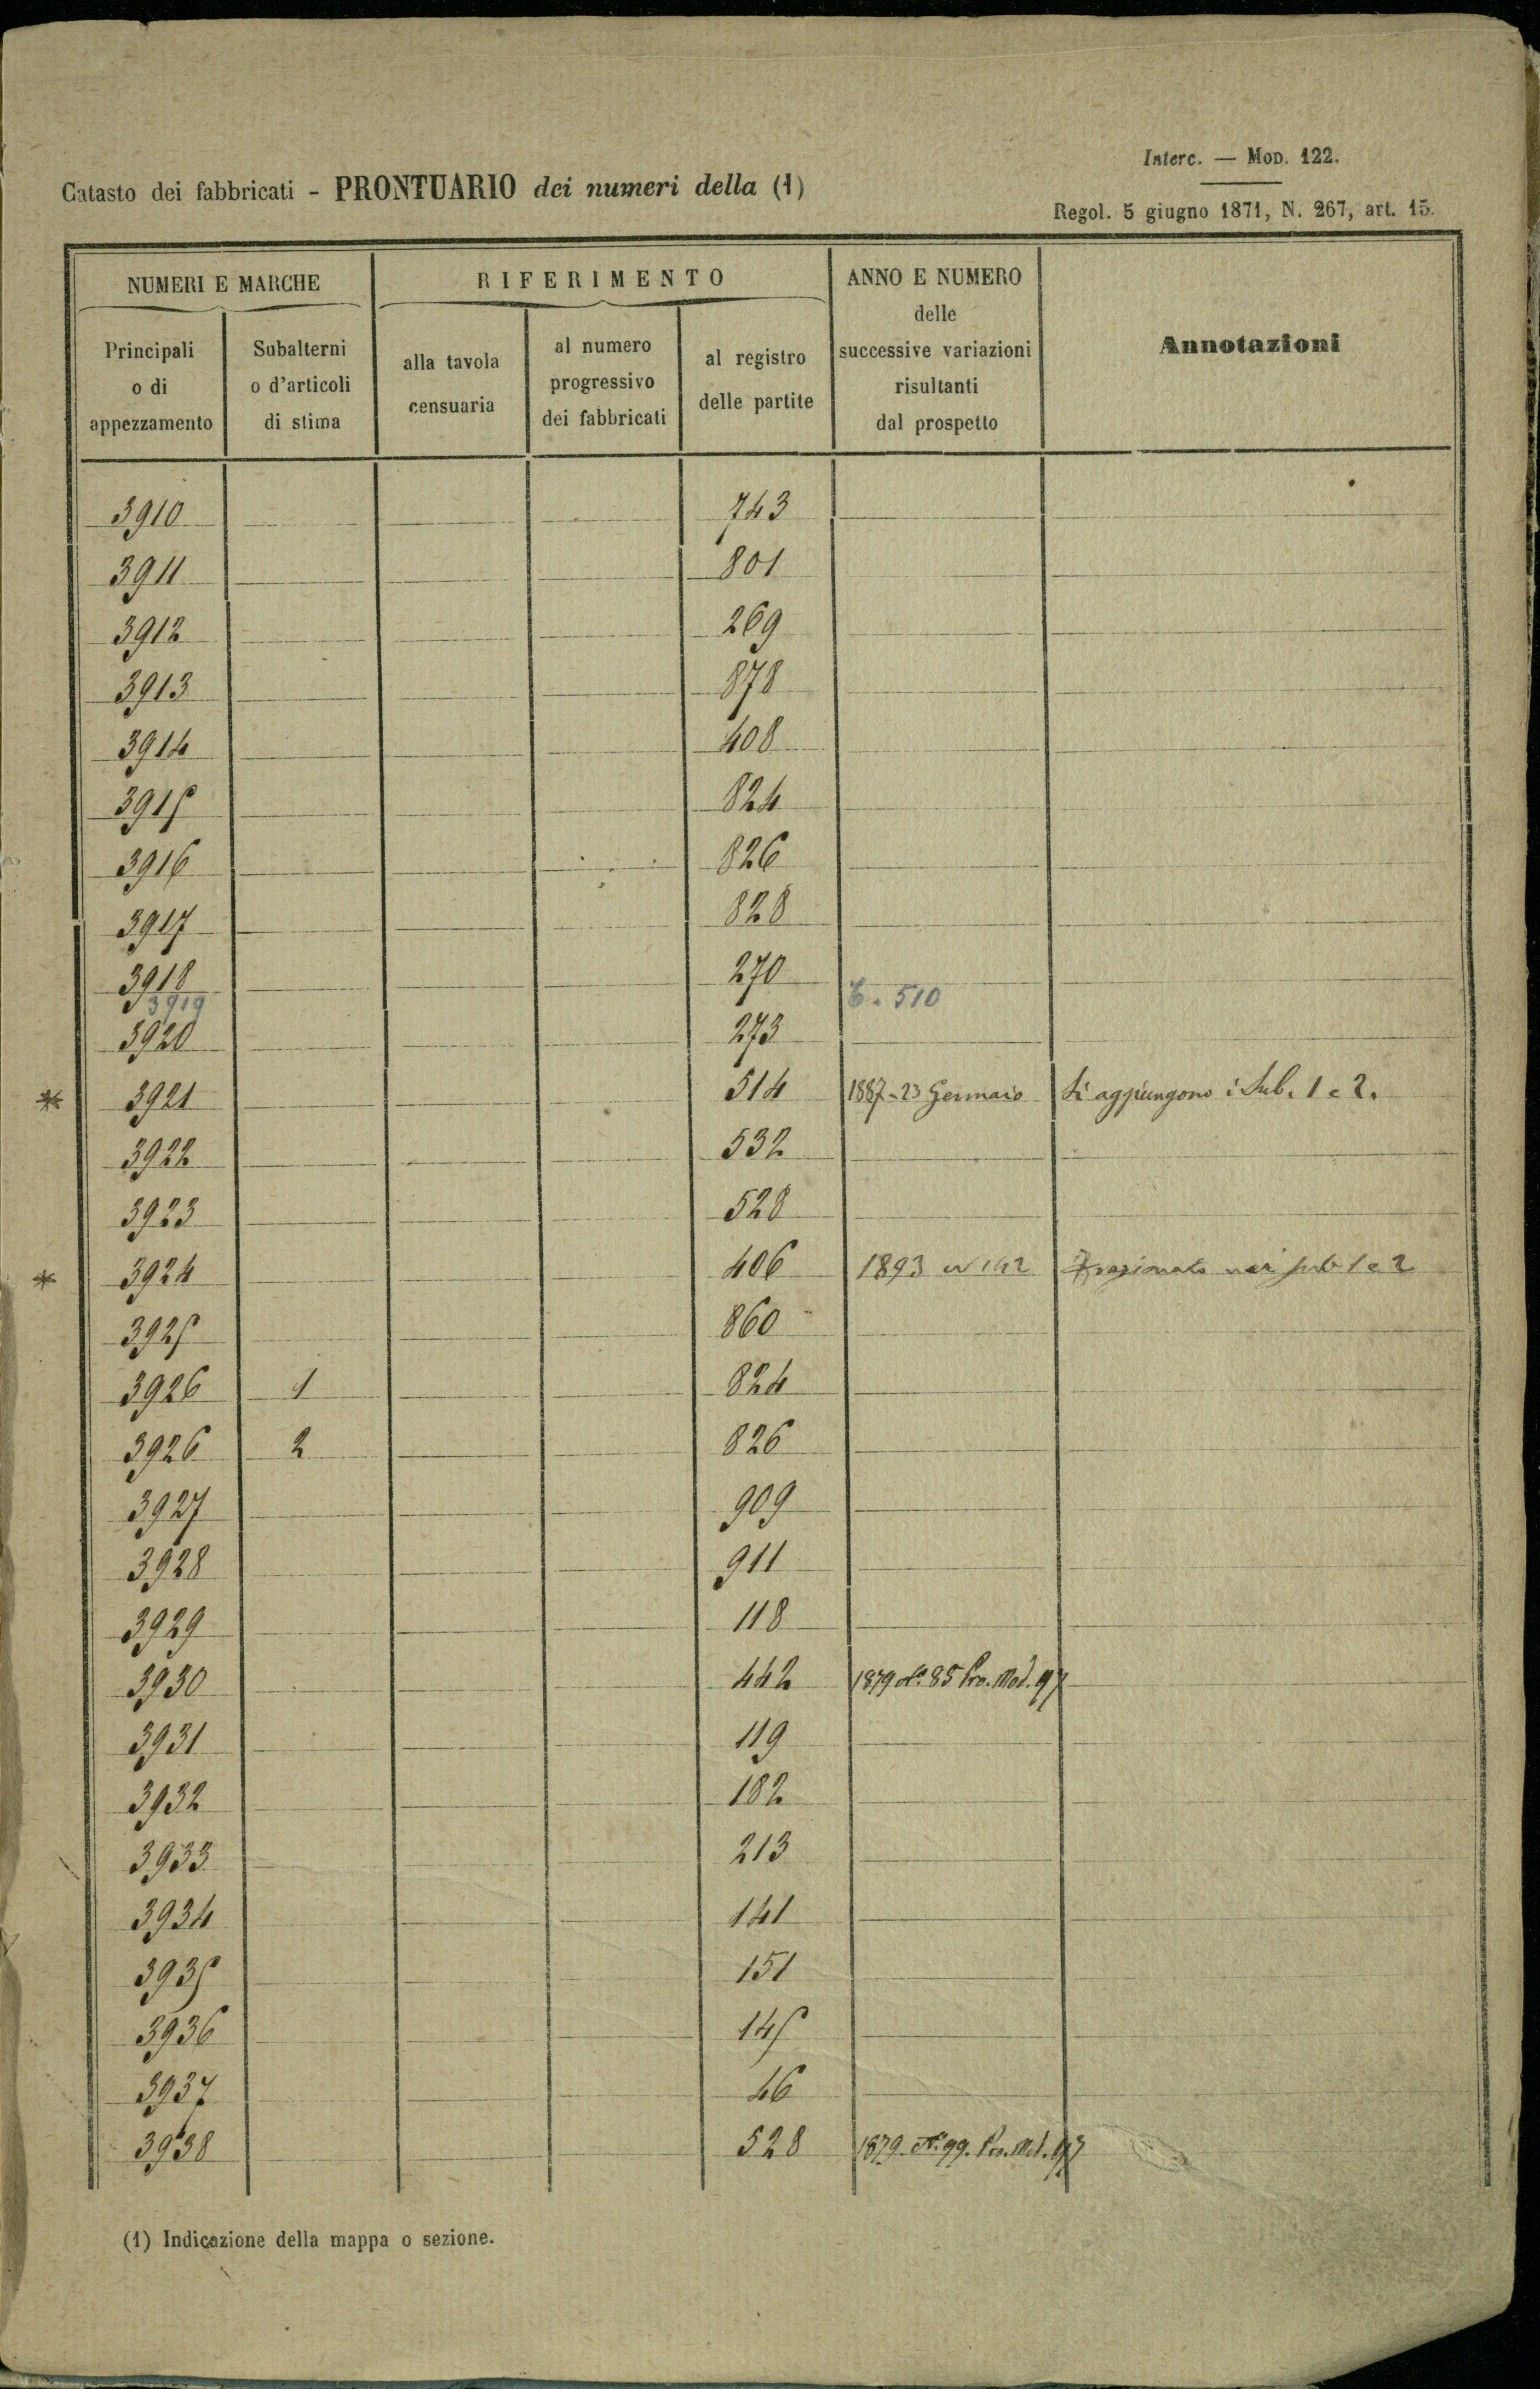 Interc. — Mod. 122.
Catasto dei fabbricati - PRONTUARIO dei numeri della (1)
Regol. 5 giugno 1871, N. 267, art. 15.
NUMERI E MARCHE
RIFERIMENTO
ANNO E NUMERO
delle
successive variazioni
risultanti
dal prospetto
Annotazioni
Principali
o di
appezzamento
Subalterni
o d'articoli
di stima
alla tavola
censuaria
al numero
progressivo
dei fabbricati
al registro
delle partite
3910 743
3911 801
3912 269
3913 878
3914 408
3915 824
3916 826
3917 828
3918 270
3919 510
3920 273
* 3921 514 1887-23 Gennaio Si aggiungono i Sub. 1 e 2.
3922 532
3923 528
* 3924 406 1893 N 142 Frazionato nei sub 1 e 2
3925 860
3926 1 824
3926 2 826
3927 909
3928 911
3929 118
3930 442 1879 N° 85 Pro. Mod. 97
3931 119
3932 182
3933 213
3934 141
3935 151
3936 145
3937 46
3938 528 1879. N° 99. Pro. Mod. 97
(1) Indicazione della mappa o sezione.